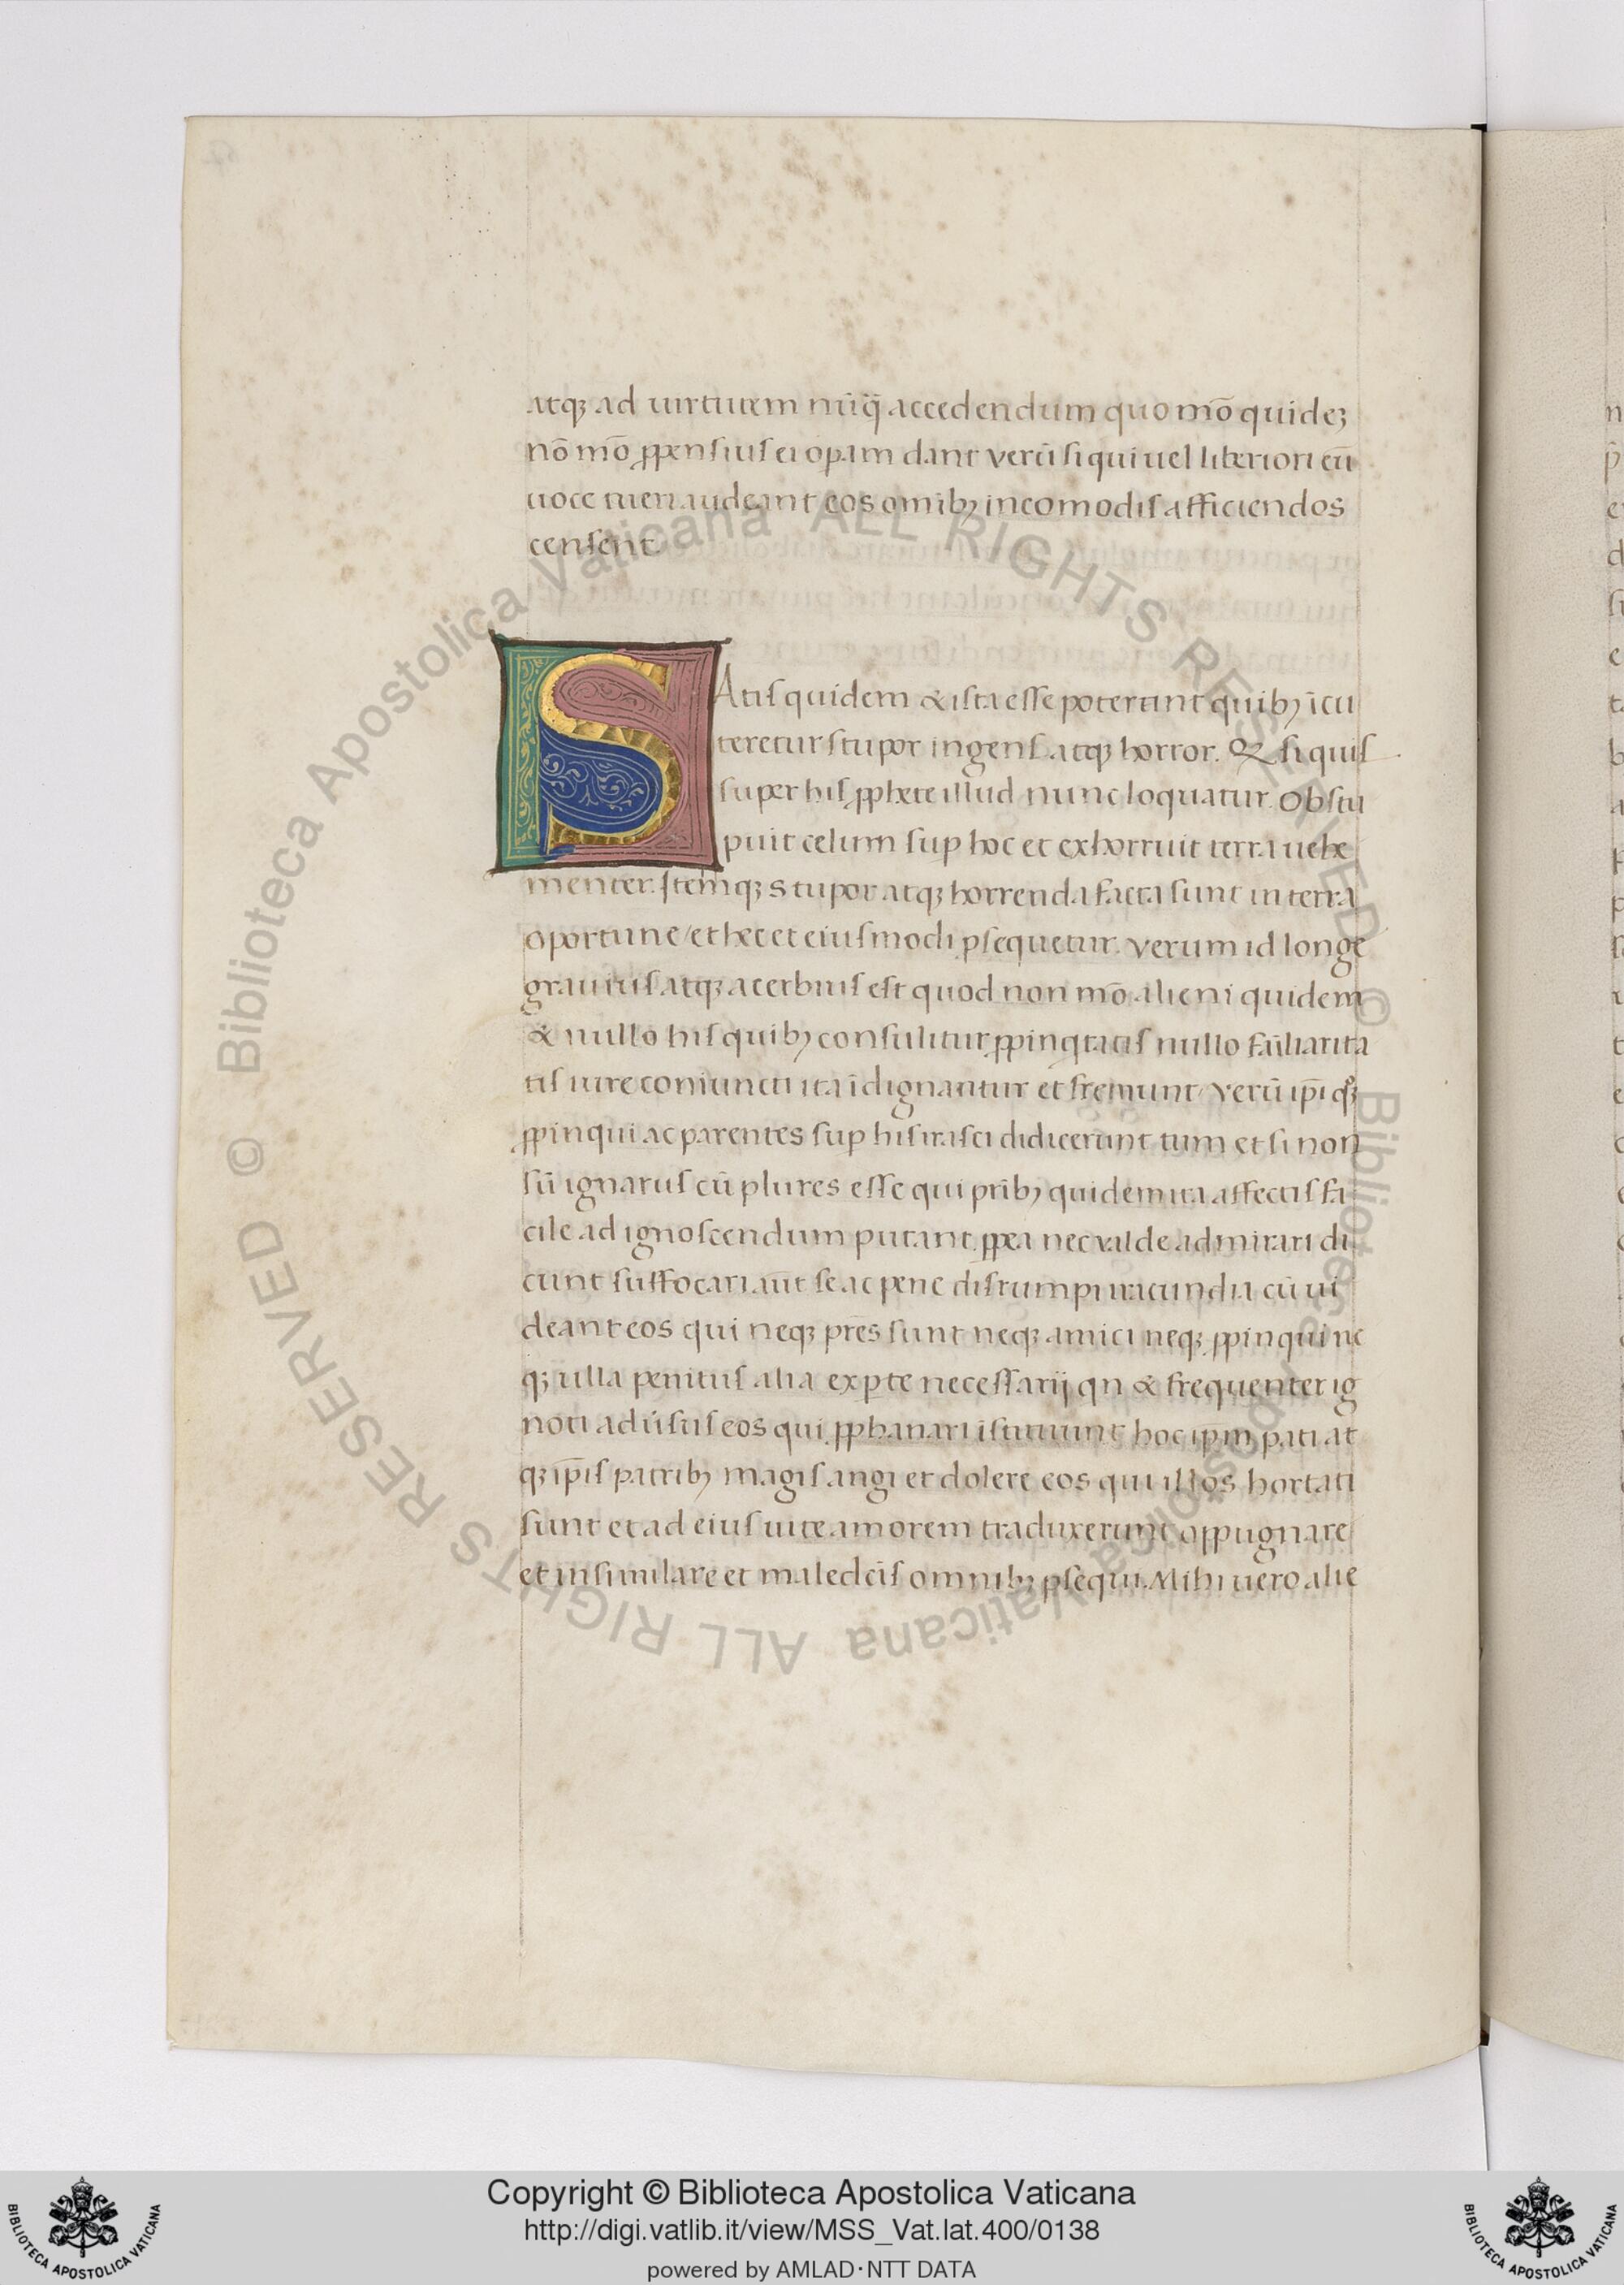 atqꝫ ad uirtutem nūq̄ accedendum quo mō quideꝫ
nō mō ꝓpensius ei opam dant verū si qui uel liberiori eū
uoce tueri audeant eos omībꝫ incomodis afficiendos
censent.
SAtis quidem & ista esse poterunt quibꝫ īcu
teretur stupor ingens atqꝫ horror. Et si quis
super his ꝓphete illud nunc loquatur. Obstu
puit celum sup hoc et exhorruit terra uehe
menter. Itemqꝫ stupor atqꝫ horrenda facta sunt in terra
oportune/ et hec et eiusmodi ꝑsequetur. Verum id longe
grauius atqꝫ acerbius est quod non mō alieni quidem
& nullo his quibꝫ consulitur ꝓpinqtatis nullo fāiliarita
tis iure coniuncti ita īdignantur et fremunt/ Verū ip̄i qꝫ
ꝓpinqui ac parentes sup his irasci didicerunt tum et si non
sū ignarus cū plures esse qui prībꝫ quidem ita affectis fa
cile ad ignoscendum putant ꝓpea nec valde admirari di
cunt suffocari aūt se ac pene disrumpi iracundia cū ui
deant eos qui neqꝫ pr̄es sunt neqꝫ amici neqꝫ ꝓpinqui ne
qꝫ ulla penitus alia ex ꝑte necessarij qn & frequenter ig
noti adūsus eos qui ꝓphanari īstituunt hoc ip̄m pati at
qꝫ ip̄is patribꝫ magis angi et dolere eos qui illos hortati
sunt et ad eius uite amorem traduxerunt oppugnare
et insimulare et maledcīs omnibꝫ ꝑsequi. Mihi uero alie
Copyright © Biblioteca Apostolica Vaticana
http://digi.vatlib.it/view/MSS_Vat.lat.400/0138
powered by AMLAD·NTT DATA